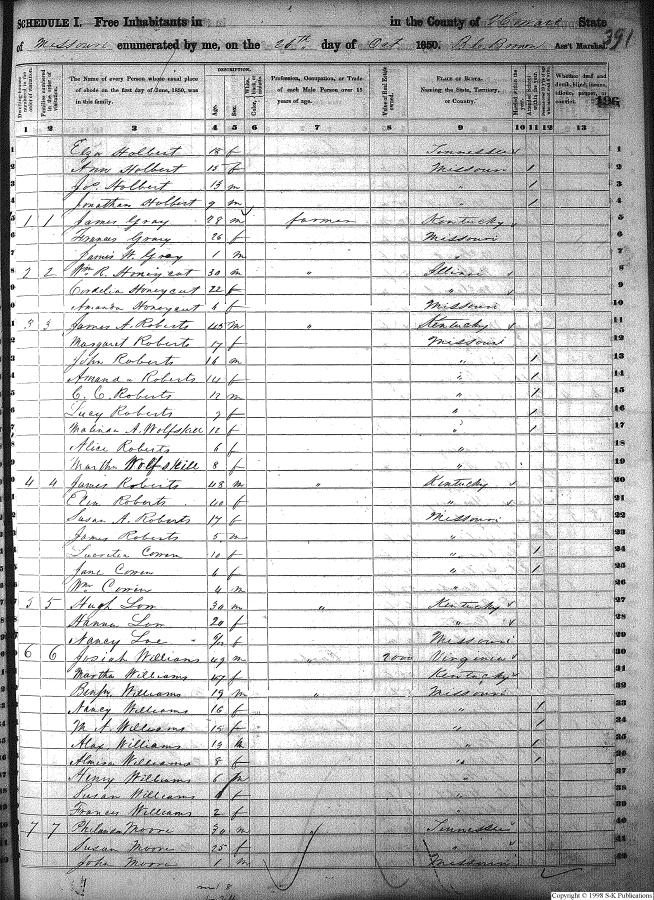 SCHEDULE I. Free Inhabitants in in the County of Howard State 391
of Missouri enumerated by me, on the 26th day of Oct 1850. Ass't Marshal.
Dwelling-houses numbered in the order of visitation.
Families numbered in the order of visitation.
The Name of every Person whose usual place of abode on the first day of June, 1850, was in this family.
DESCRIPTION.
Age.
Sex.
Color,
Profession, Occupation, or Trade of each Male Person over 15 years of age.
Value of Real Estate owned.
PLACE OF BIRTH. Naming the State, Territory, or Country.
Married within the year.
Whether deaf and dumb, blind, insane, idiotic, pauper, or convict.
1 2 3 4 5 6 7 8 9 10 11 12 13
1 Holbert 18 f Tennessee 1
2 Ann Holbert 15 f Missouri / 2
3 Jos Holbert 13 m " / 3
4 Jonathan Holbert 9 m " / 4
5 1 1 James Gray 28 m farmer Kentucky 5
6 Frances Gray 26 f Missouri 6
7 James W. Gray 1 m " 7
8 2 2 Wm R. Honeycut 30 m " Illinois 8
9 Cordelia Honeycut 22 f " 9
10 Amanda Honeycut 6 f Missouri 10
11 3 3 James A. Roberts 43 m " Kentucky 11
12 Margaret Roberts 17 f Missouri 12
13 John Roberts 16 m " / 13
14 Amanda Roberts 14 f " / 14
15 C. C. Roberts 12 m " / 15
16 Lucy Roberts 9 f " / 16
17 Malinda A. Wolfskill 12 f " / 17
18 Alice Roberts 6 f " 18
19 Martha Wolfskill 8 f " 19
20 4 4 James Roberts 48 m " Kentucky 20
21 Roberts 40 f " 21
22 Susan A. Roberts 17 f Missouri 22
23 James Roberts 5 m " 23
24 Lucretia Cowen 10 f " / 24
25 Jane Cowen 6 f " / 25
26 Wm Cowen 4 m " 26
27 5 5 Hugh Low 30 m " Kentucky 27
28 Hanna Low 20 f " 28
29 Nancy f Missouri 29
30 6 6 Josiah Williams 49 m " 2000 Virginia 30
31 Martha Williams 47 f Kentucky 31
32 Benjn. Williams 19 m " Missouri 32
33 Nancy Williams 16 f " / 33
34 M. A. Williams 15 f " / 34
35 Alax Williams 13 m " / 35
36 Almira Williams 8 f " / 36
37 Henry Williams 6 m " 37
38 Susan Williams f " 38
39 Frances Williams 2 f " 39
40 7 7 Moore 30 m " Tennessee 40
41 Susan Moore 25 f " 41
42 John Moore 1 m Missouri 42
Copyright © 1998 S-K Publications